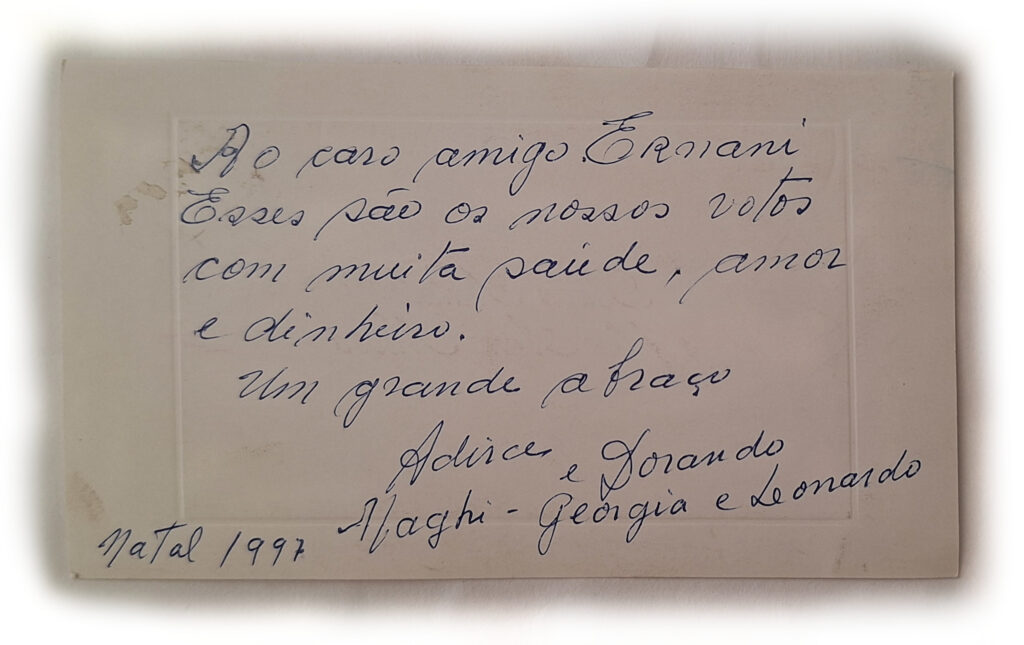 Ao caro amigo Ernani
Esses são os nossos votos
com muita saúde, amor
e dinheiro.
Um grande abraço
Adirce e Dorando
Maghi - Geórgia e Leonardo
Natal 1997